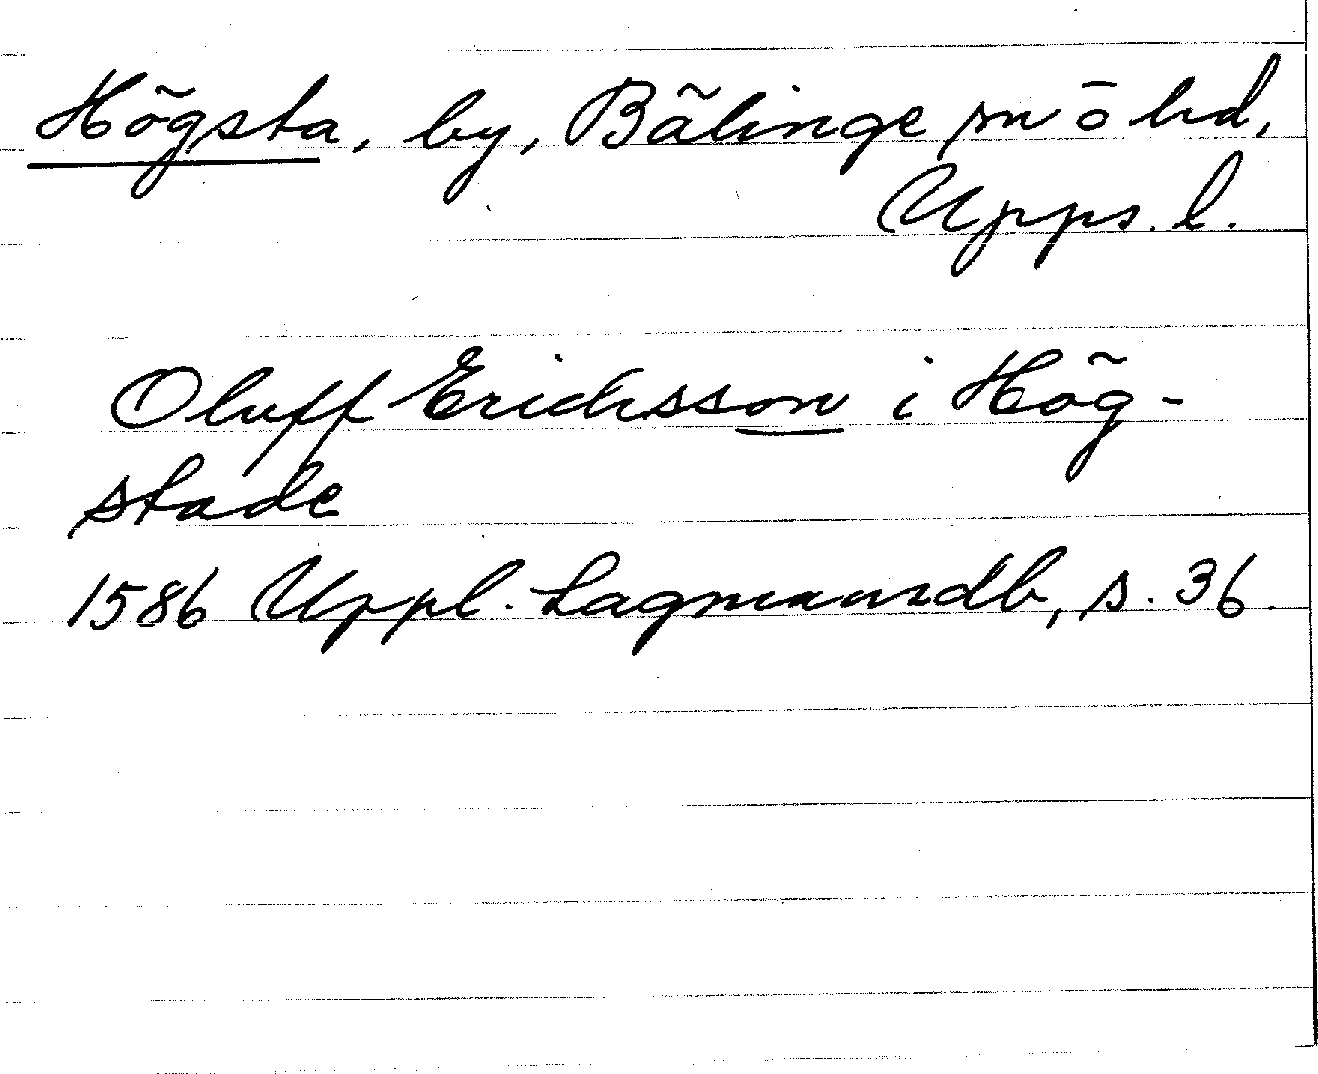 Högsta, by, Bälinge sn ō hd,
Upps. l.
Oluff Ericksson i Hög-
stade
1586 Uppl. Lagmansdb, s. 36.